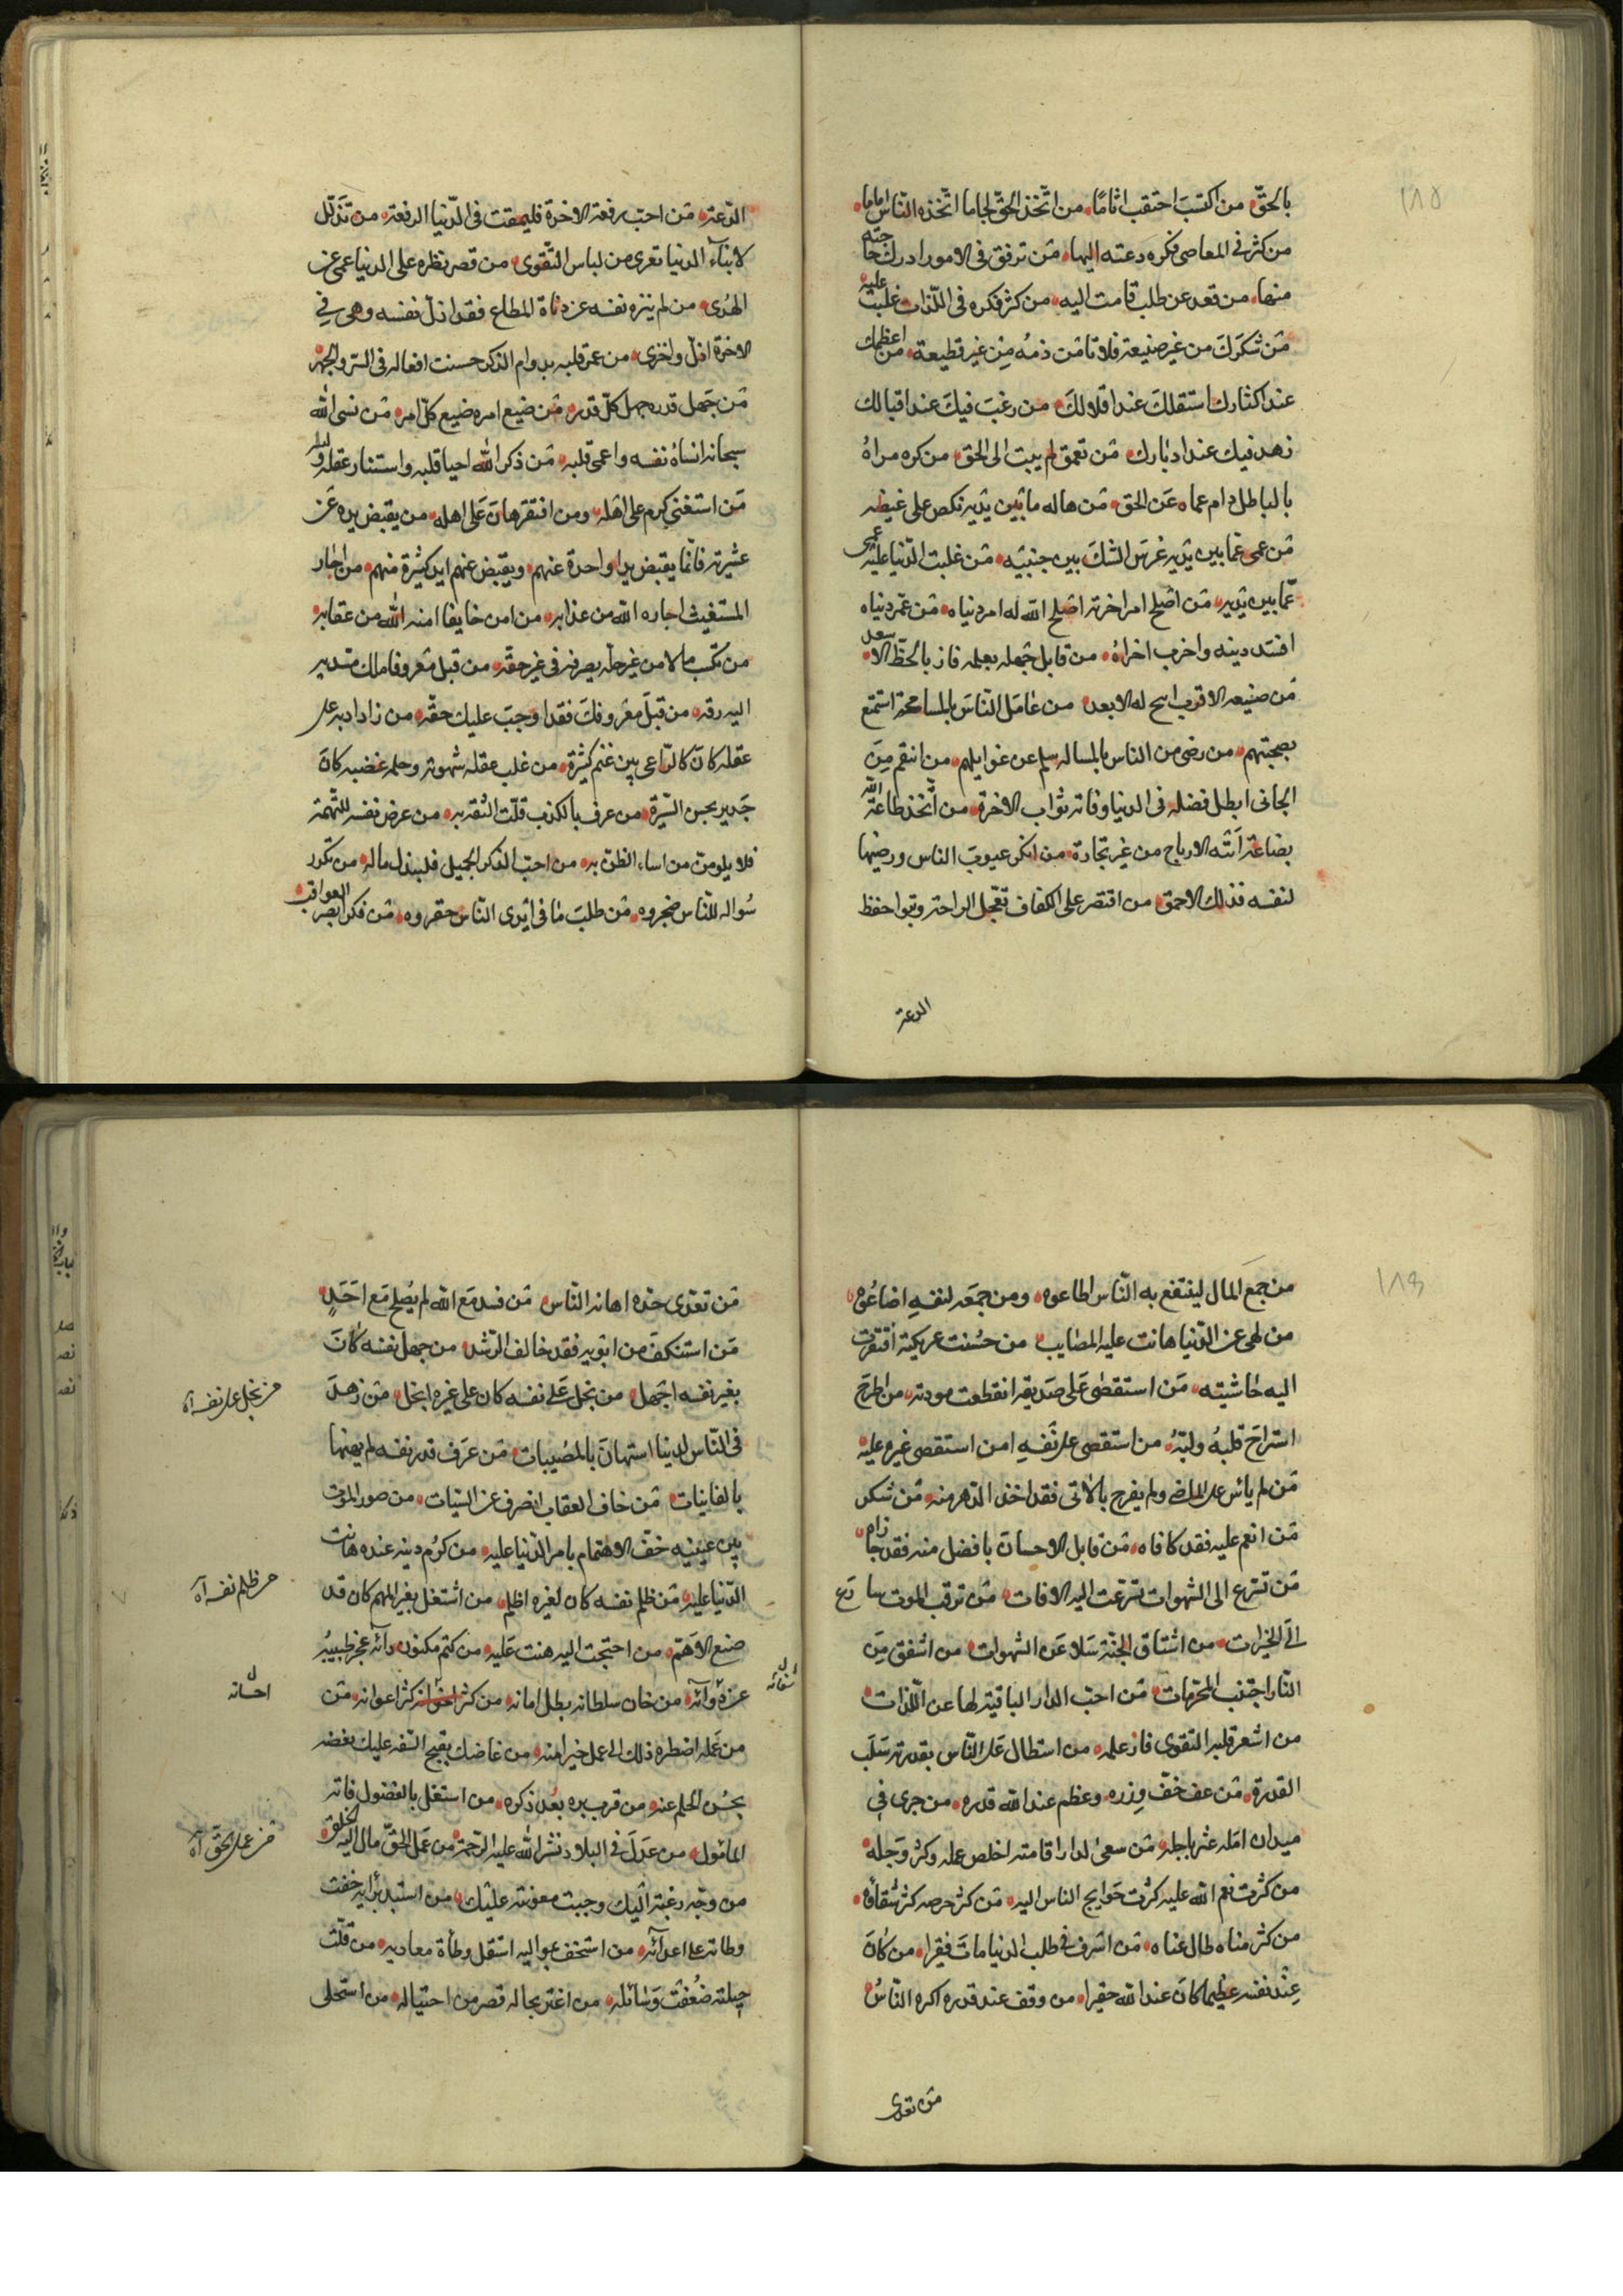 ١٨٥
بالحقّ من اكتسب احتقب اثامًا من اتّخذ الحقّ لجاما اتّخذه النّاس اماما
من كثر في المعاصى فكره دعته اليها من ترفق فى الامور ادرك حاجته
منها من قعد عن طلب قامت اليه من كثر فكره فى اللّذات غلبت عليه
من شكرك من غير صنيعة فلا تامن ذمه من غير قطيعة من اعظمك
عند اكثارك استقلك عند اقلالك من رغب فيك عند اقبالك
زهد فيك عند ادبارك من تعمق لم يبت الى الحق من كره مراه
بالباطل دام عماه عن الحق من هاله ما بين يديه نكص على
من عمى عما بين يديه غرس الشك بين جنبيه من غلبت الدّنيا عليه عمى
عمّا بين يديه من اصلح امر اخرته اصلح الله له امر دنياه من عمر دنياه
افسد دينه واخرب اخراه من قابل جهله بعلمه فاز بالحظّ الاسعد
من الاقرب ابيح له الابعد من عامل النّاس بالمسامحة استمتع
بصحبتهم من رضى من الناس بالمسالمه سلم عن غوايلهم من انتقم من
الجانى ابطل فضله فى الدنيا وفاته ثواب الاخرة من اتّخذ طاعة الله
بضاعة اتته الارباح من غير تجارة من انكر عيوب الناس ورضيها
لنفسه فذلك الاحمق من اقتصر على الكفاف تعجل الراحة وتبوا خفض
الدعة
الدّعة من احبّ رفعة الاخرة فليمقت فى الدّنيا الرفعة من تذلّل
لابناء الدنيا تعرى من لباس التّقوى من قصر نظره على الدنيا عمى عن
الهدى من لم ينزه نفسه عن دناة المطامع فقد اذلّ نفسه وهى فى
الاخرة اذل واخزى من عمر قلبه بدوام الذكر حسنت افعاله فى السّر والجهر
من جهل قدره جهل كلّ قدر من ضيع امره ضيع كلّ امر من نسى الله
سبحانه انساه نفسه واعمى قلبه من ذكر الله احيا قلبه واستنار عقله ولبه
من استغنى كرم على اهله ومن افتقر هان على اهله من يقبض يده عن
عشيرته فانّما يقبض يدا واحدة عنهم ويقبض عنهم ايد كثيرة منهم من اجار
المستغيث اجاره الله من عذابه من امن خايفا امنه الله من عقابه
من كسب مالا من غير حلّه يصرفه فى غير حقّه من قبل معروفا ملك مسديه
اليه رقه من قبل معروفك فقد اوجب عليك حقّه من زاد ادبه على
عقله كان كالرّاعى بين غنم كثيرة من غلب عقله شهوته وحلمه غضبه كان
جديرا بحسن السّيرة من عرف بالكذب قلّت الثقة به من عرض نفسه للتّهمة
فلا يلومن من اساء الظن به من احبّ الذكر الجميل فليبذل ماله من تكرر
سواله للنّاس ضجروه من طلب ما فى ايدى النّاس حقروه من فكر ابصر العواقب
١٨٦
من جمع المال لينتفع به النّاس اطاعوه ومن جمعه لنفسه اضاعوه
من لهى عن الدّنيا هانت عليه المصايب من حسنت عريكته افتقرت
اليه حاشيته من استقصى على صديقه انقطعت مودته من اطرح
استراح قلبه ولبّه من استقصى على نفسه امن استقصى غيره عليه
من لم يائس على الماضى ولم يفرح بالاتى فقد اخذ الزهد من شكر
من انعم عليه فقد كافاه من قابل الاحسان بافضل منه فقد جازاه
من تسرع الى الشهوات تسرعت اليه الافات من ترقب الموت سارع
الى الخيرات من اشتاق الجنّة سلا عن الشهوات من اشفق من
النّار اجتنب المحرّمات من احبّ الدار الباقية لها عن اللذات
من اشعر قلبه التقوى فاز عمله من استطال على النّاس بقدرته سلب
القدرة من عف خفّ وزره وعظم عند الله قدره من جرى فى
ميدان امله عثر باجله من سعى لدار اقامته اخلص عمله وكثر وجله
من كثرت نعم الله عليه كثرت حوايج الناس اليه من كثر حرصه كثر شقاؤه
من كثر مناه طال عناه من اسرف فى طلب الدنيا مات فقيرا من كان
عند نفسه عظيما كان عند الله حقيرا من وقف عند قدره اكره النّاس
من تعدى
من تعدى حدّه اهانه النّاس من فسد مع الله لم يصلح مع احد
من استنكف من ابويه فقد خالف الرّشد من جهل نفسه كان
بغير نفسه اجهل من بخل على نفسه كان على غيره ابخل من زهد
فى النّاس الدنيا استهان بالمصيبات من عرف قدر نفسه لم يهنها
بالفانيات من خاف العقاب انصرف عن السّيات من صور الموت
بين عينيه خفّ الاهتمام بامر الدّنيا عليه من كرم دينه عنده هانت
الدّنيا عليه من ظلم نفسه كان لغيره اظلم من اشتغل بغير المهم كان قد
ضيع الاهمّ من احتجت اليه هنت عليه من كتم مكنون دائه عجز طبيبه
من خان سلطانه بطل امانه من كثر اخوانه كثر اعوانه من
من عمله اضطره ذلك الى عمل خير منه من غاضك بقبح السّفه عليك فغضه
بحسن الحلم عنه من قرب بره بعد ذكره من اشتغل بالفضول فاته
المامول من عدل فى البلاد نشر الله عليه الرّحمة من عمل الحقّ مال اليه الخلق
من وجّه رغبته اليك وجبت معونته عليك من استبد برأيه خفت
وطاته على اعدائه من استخف بمواليه استقل وطأة معاديه من قلّت
حيلته ضعفت وسائله من اغتر بحاله قصر من احتياله من استحلى
من بخل على نفسه اه
من ظلم نفسه اه
احسانه
من عمل بالحق اه